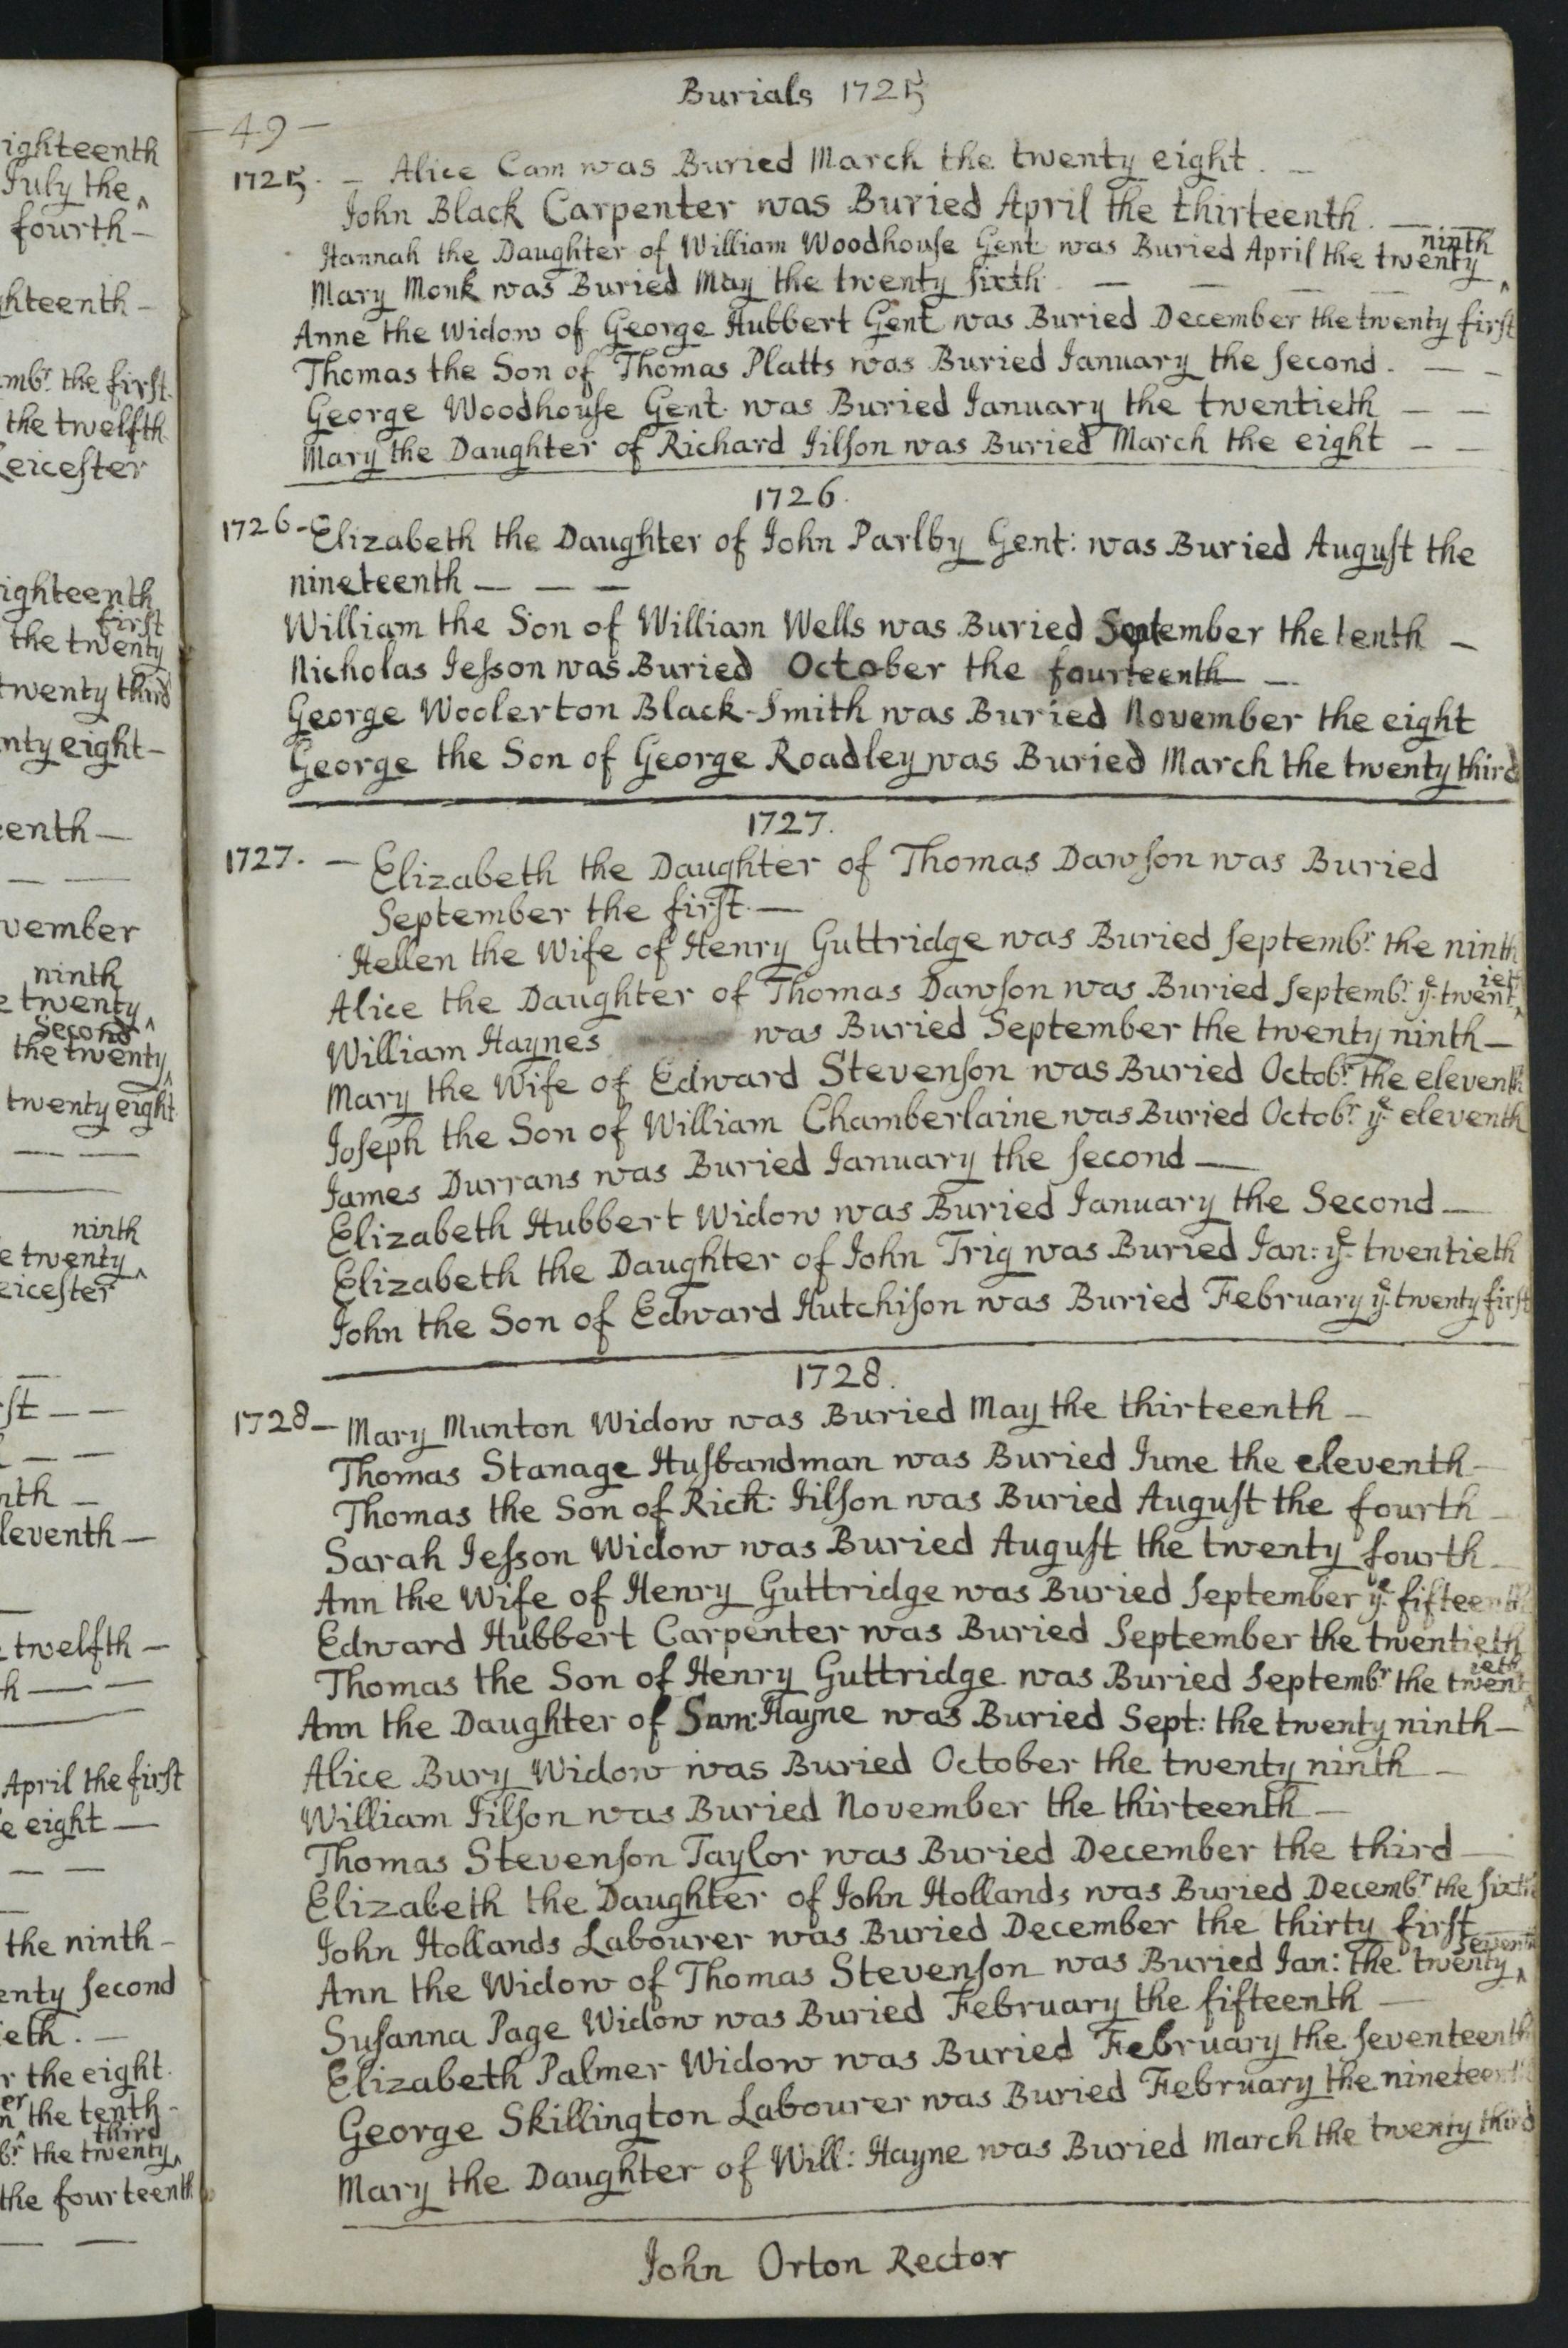 ighteenth
July the ^
fourth —
ghteenth —
mbr. the first.
the twelfth
Leicester
ighteenth
first
the twenty
twenty third
nty eight —
eenth —
vember
ninth
e twenty ^
second
the twenty ^
twenty eight
ninth
e twenty ^
eicester
st — —
nth —
leventh —
twelfth —
h — —
April the first
e eight —
the ninth —
enty second
ieth. —
r the eight.
er
n ^ the tenth —
third
br. the twenty ^
the fourteenth
Burials 1725
— 49 —
1725. — Alice Cam was Buried March the twenty eight. —
John Black Carpenter was Buried April the thirteenth. —
ninth
Hannah the Daughter of William Woodhouse Gent: was Buried April the twenty ^
Mary Monk was Buried May the twenty sixth — — — —
Anne the Widow of George Hubbert Gent was Buried December the twenty first
Thomas the Son of Thomas Platts was Buried Ianuary the second. — —
George Woodhouse Gent. was Buried Ianuary the twentieth — —
Mary the Daughter of Richard Iilson was Buried March the eight — —
1726.
1726 - Elizabeth the Daughter of Iohn Parlby Gent: was Buried August the
nineteenth — — —
William the Son of William Wells was Buried September the tenth —
Nicholas Iesson was Buried October the fourteenth —
George Woolerton Black-Smith was Buried November the eight
George the Son of George Roadley was Buried March the twenty third
1727.
1727. — Elizabeth the Daughter of Thomas Dawson was Buried
September the first. —
Hellen the Wife of Henry Guttridge was Buried septembr. the ninth
iet
Alice the Daughter of Thomas Dawson was Buried septembr. ye. twent ^
William Haynes was Buried September the twenty ninth —
Mary the Wife of Edward Stevenson was Buried Octobr. the eleventh
Ioseph the Son of William Chamberlaine was Buried Octobr. ye. eleventh
Iames Durrans was Buried Ianuary the second —
Elizabeth Hubbert Widow was Buried Ianuary the Second —
Elizabeth the Daughter of Iohn Trig was Buried Ian: ye. twentieth
Iohn the Son of Edward Hutchison was Buried February ye. twenty first
1728.
1728 — Mary Munton Widow was Buried May the thirteenth —
Thomas Stanage Husbandman was Buried Iune the eleventh —
Thomas the Son of Rich: Iilson was Buried August the fourth —
Sarah Iesson Widow was Buried August the twenty fourth —
Ann the Wife of Henry Guttridge was Buried September ye. fifteenth
Edward Hubbert Carpenter was Buried September the twentieth
ieth
Thomas the Son of Henry Guttridge was Buried Septembr the twent ^
Ann the Daughter of Sam: Hayne was Buried Sept: the twenty ninth —
Alice Bury Widow was Buried October the twenty ninth —
William Iilson was Buried November the thirteenth —
Thomas Stevenson Taylor was Buried December the third —
Elizabeth the Daughter of Iohn Hollands was Buried Decembr the sixth
Iohn Hollands Labourer was Buried December the thirty first
seventh
Ann the Widow of Thomas Stevenson was Buried Ian: the twenty ^
Susanna Page Widow was Buried February the fifteenth —
Elizabeth Palmer Widow was Buried February the seventeenth
George Skillington Labourer was Buried February the nineteenth
Mary the Daughter of Will: Hayne was Buried March the twenty third
Iohn Orton Rector